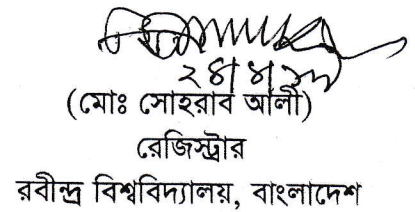 (মোঃ সোহরাব আলী)
রেজিস্ট্রার
রবীন্দ্র বিশ্ববিদ্যালয়, বাংলাদেশ